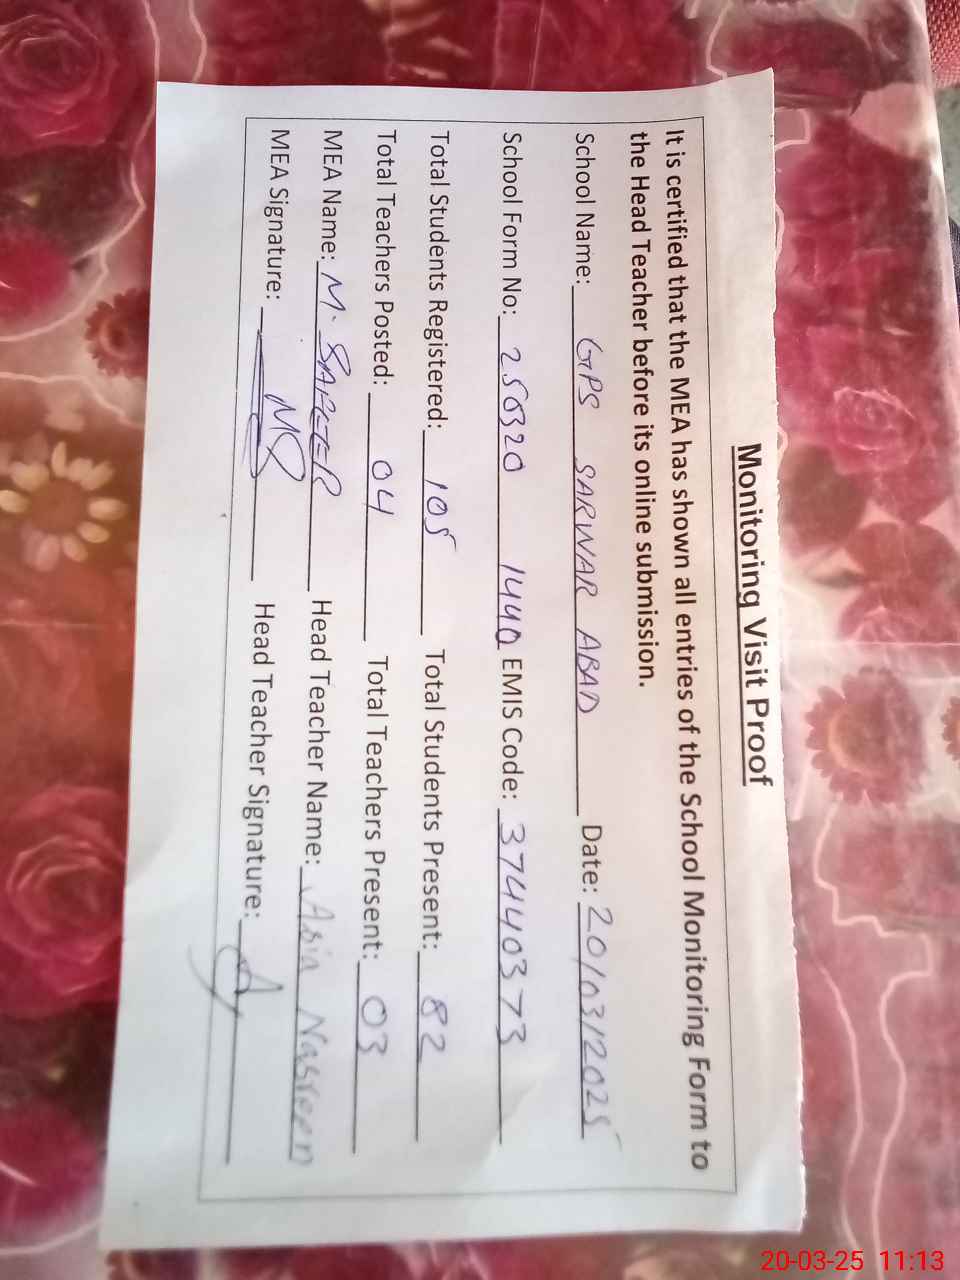 Monitoring Visit Proof
It is certified that the MEA has shown all entries of the School Monitoring Form to
the Head Teacher before its online submission.
School Name: GPS SARWAR ABAD Date: 20/03/2025
School Form No: 256320 1440 EMIS Code: 37440373
Total Students Registered: 105 Total Students Present: 82
Total Teachers Posted: 04 Total Teachers Present: 03
MEA Name: M. Head Teacher Name: Asia Nasreen
MEA Signature: Head Teacher Signature:
20-03-25 11:13